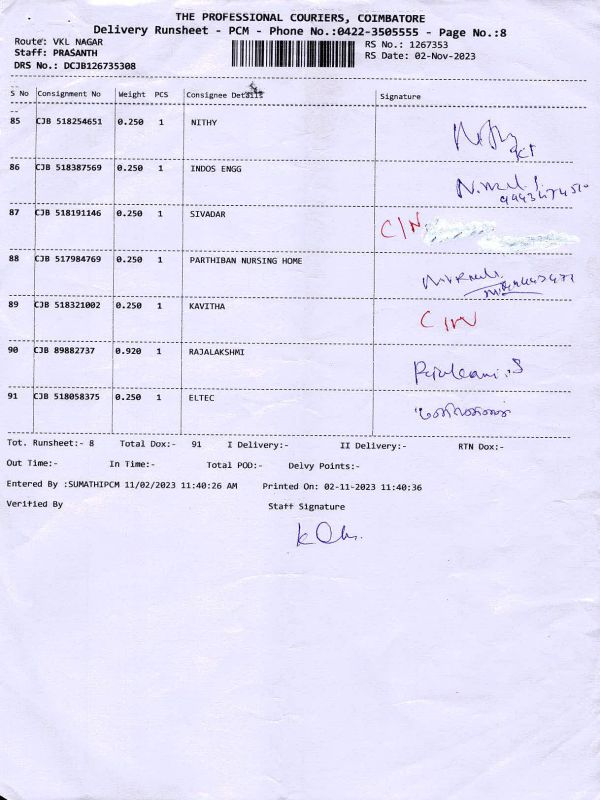 THE PROFESSIONAL COURIERS, COIMBATORE
Delivery Runsheet - PCM - Phone No.:0422-3505555 - Page No.:8
Route: VKL NAGAR RS No.: 1267353
Staff: PRASANTH RS Date: 02-Nov-2023
DRS No.: DCJB126735308
S No Consignment No Weight PCS Consignee Details Signature
85 CJB 518254651 0.250 1 NITHY
86 CJB 518387569 0.250 1 INDOS ENGG
87 CJB 518191146 0.250 1 SIVADAR C/N
88 CJB 517984769 0.250 1 PARTHIBAN NURSING HOME
89 CJB 518321002 0.250 1 KAVITHA
90 CJB 89882737 0.920 1 RAJALAKSHMI
91 CJB 518058375 0.250 1 ELTEC
Tot. Runsheet:- 8 Total Dox:- 91 I Delivery:- II Delivery:- RTN Dox:-
Out Time:- In Time:- Total POD:- Delvy Points:-
Entered By :SUMATHIPCM 11/02/2023 11:40:26 AM Printed On: 02-11-2023 11:40:36
Verified By Staff Signature